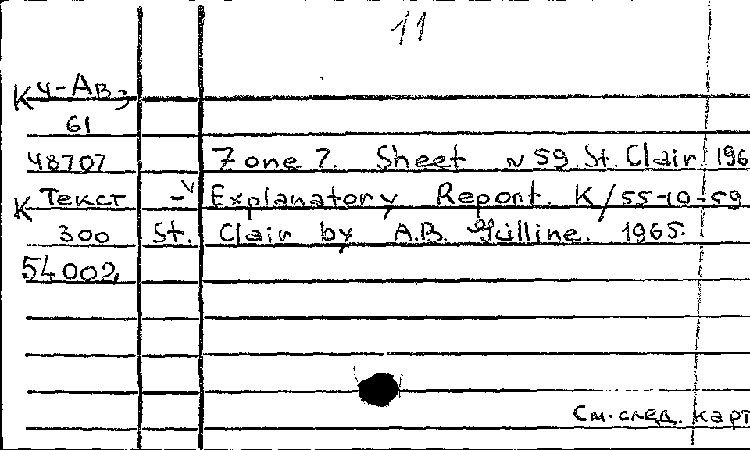 11
К Ч-Ав3
61
48707 Zone 7. Sheet N 59 St. Clair 196
К Текст -v Explanatory Report. K/55-10-59
300 St. Clair by A.B. Gulline. 1965.
54002
См. след. карт